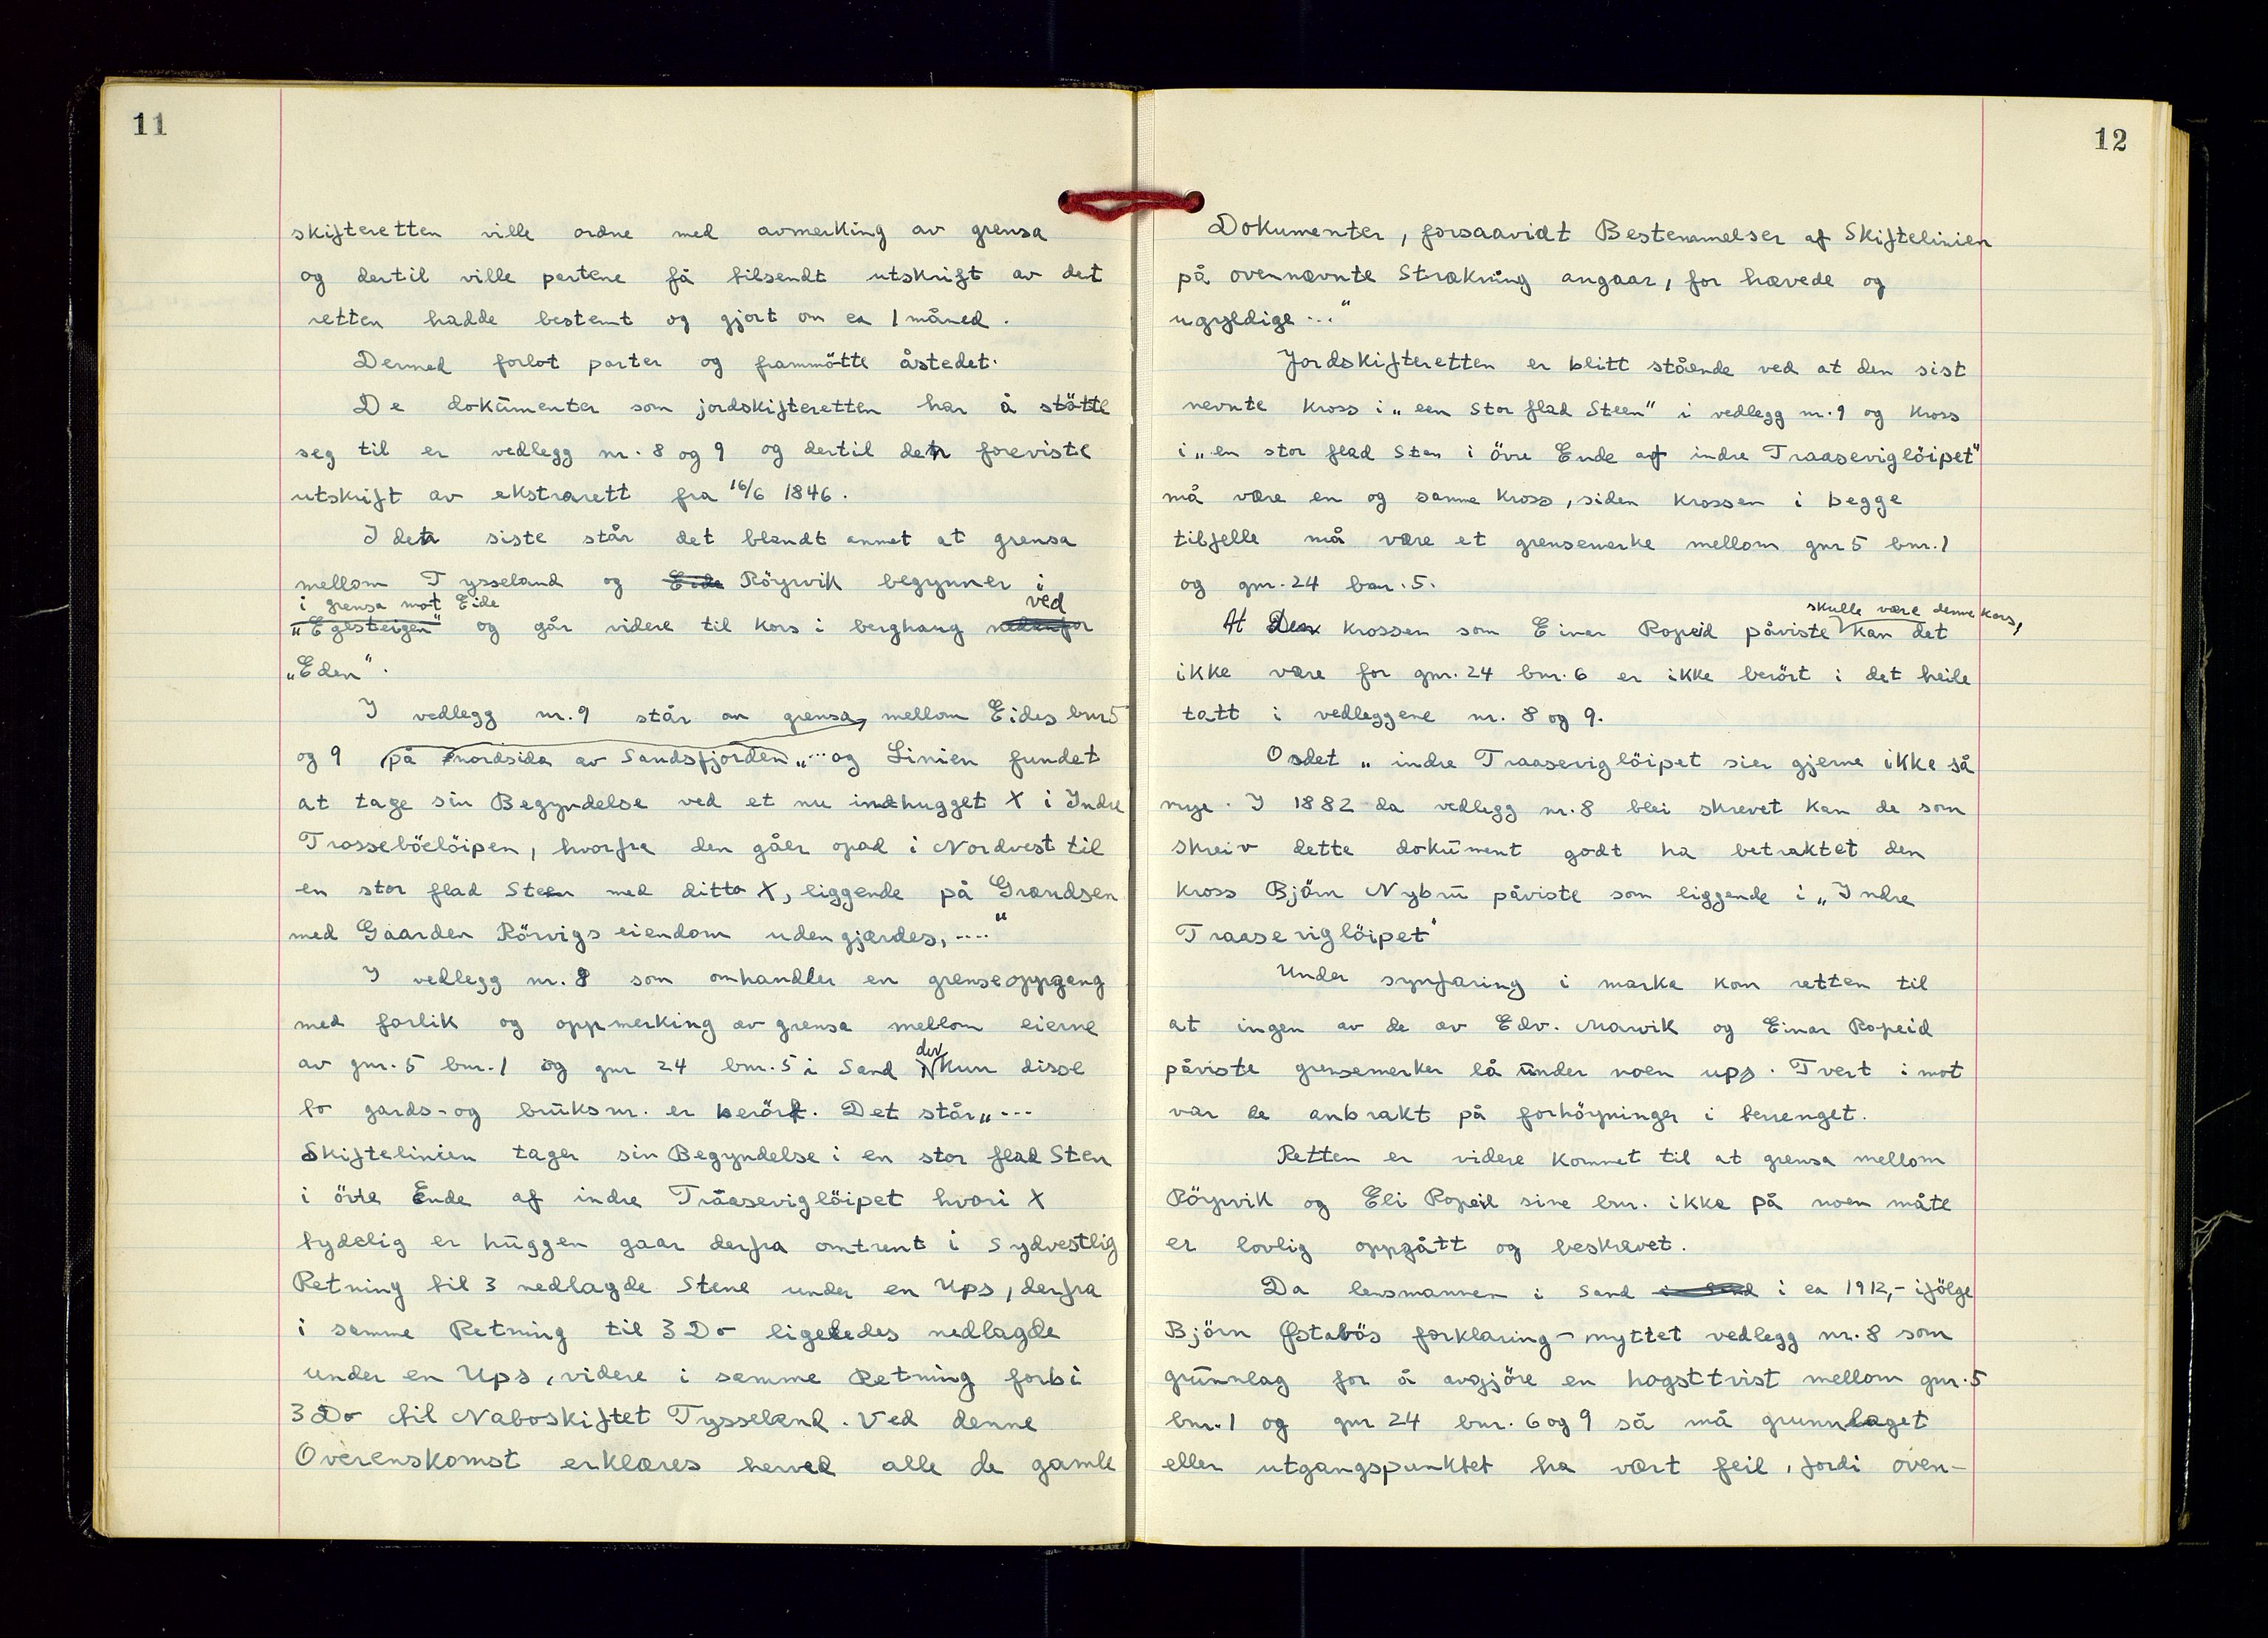 11
skifteretten ville ordne med avmerking av grensa
og dertil ville partene få tilsendt utskrift av det
retten hadde bestemt og gjort om ca 1 måned.
Dermed forlot parter og frammötte åstedet.
De dokumenter som jordskifteretten har å stötte
seg til er vedlegg nr. 8 og 9 og dertil den foreviste
utskrift av ekstrarett fra 16/6 1846.
I den siste står det blandt annet at grensa
mellom Tysseland og Eide Röyrvik begynner i
i grensa mot Eide ved
„Egesteigen" og går videre til kors i berghaug nedenfor
„Eden".
I vedlegg nr. 9 står om grensa, mellom Eides bnr 5
og 9 på nordsida av Sandsfjorden „... og Linien fundet
at tage sin Begyndelse ved et nu indhugget X i Indre
Trosseböelöipen, hvorfra den gåer opad i Nordvest til
en stor flad Steen med ditto X, liggende på Grændsen
med Gaarden Rörvigs eiendom uden gjærdes, ...."
I vedlegg nr. 8 som omhandler en grenseoppgang
med forlik og oppmerking av grensa mellom eierne
av gnr. 5 bnr. 1 og gnr 24 bnr. 5 i Sand der kun disse
to gards- og bruksnr. er berört. Det står „...
Skiftelinien tager sin Begyndelse i en stor flad Sten
i övre Ende af indre Traaseviglöipet hvori X
tydelig er huggen gaar derfra omtrent i Sydvestlig
Retning til 3 nedlagde Stene under en Ups, derfra
i samme Retning til 3 Do ligeledes nedlagde
under en Ups, videre i samme Retning forbi
3 Do til Naboskiftet Tysseland. Ved denne
Overenskomst erklæres herved alle de gamle
12
Dokumenter, forsaavidt Bestemmelser af Skiftelinien
på ovennævnte Strækning angaar, for hævede og
ugyldige ..."
Jordskifteretten er blitt stående ved at den sist
nevnte kross i „een stor flad Steen" i vedlegg nr. 9 og kross
i „en stor flad Sten i övre Ende af indre Traaseviglöipet"
må være en og samme kross, siden krossen i begge
tilfelle må være et grensemerke mellom gnr 5 bnr. 1
og gnr. 24 bnr. 5.
skulle være denne kors,
At Den krossen som Einar Ropeid påviste kan det
ikke være for gnr. 24 bnr. 6 er ikke berört i det heile
tatt i vedleggene nr. 8 og 9.
Ordet „indre Traaseviglöipet sier gjerne ikke så
mye. I 1882 da vedlegg nr. 8 blei skrevet kan de som
skreiv dette dokument godt ha betraktet den
kross Björn Nybru påviste som liggende i „Indre
Traaseviglöipet"
Under synfaring i marka kom retten til
at ingen av de av Edv. Marvik og Einar Ropeid
påviste grensemerker lå under noen ups. Tvert i mot
var de anbrakt på forhöyninger i terrenget.
Retten er videre kommet til at grensa mellom
Röyrvik og Eli Ropeid sine bnr. ikke på noen måte
er lovlig oppgått og beskrevet.
Da lensmannen i Sand i Sand i ca 1912, - ifölge
Björn Østabös forklaring - nyttet vedlegg nr. 8 som
grunnlag for å avgjöre en hogsttvist mellom gnr. 5
bnr. 1 og gnr 24 bnr. 6 og 9 så må grunnlaget
eller utgangspunktet ha vært feil, fordi oven-